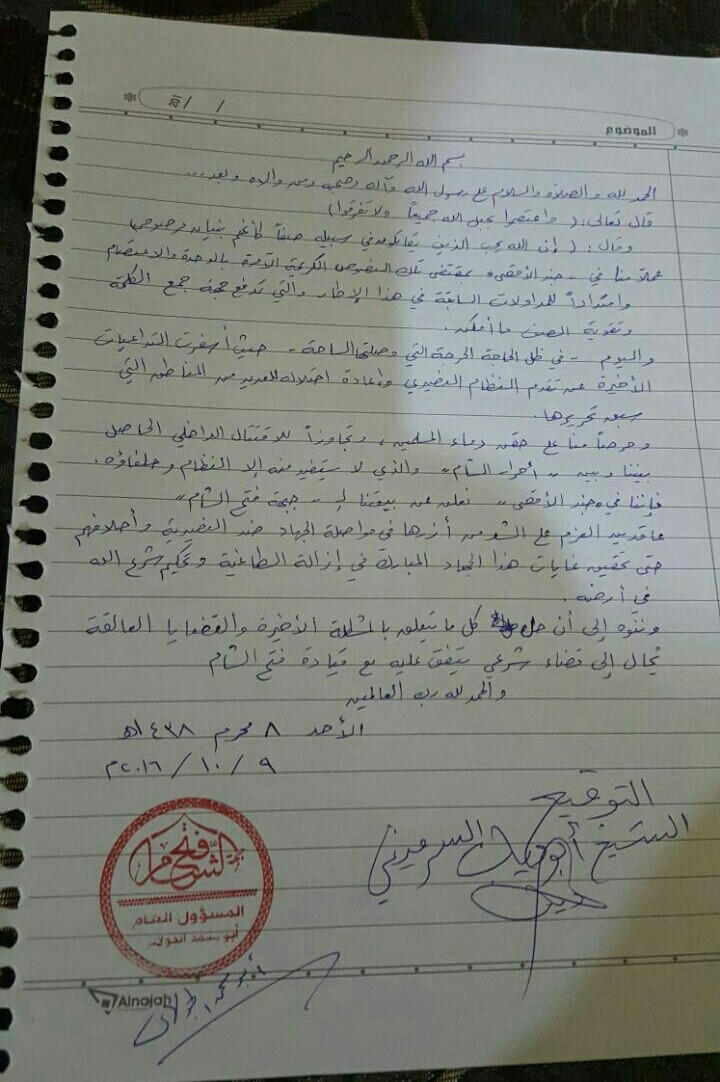 الموضوع
/ / 20
بسم الله الرحمن الرحيم
الحمد لله والصلاة والسلام على رسول الله وآله وصحبه ومن والاه وبعد...
قال تعالى: ( واعتصموا بحبل الله جميعاً ولا تفرقوا)
وقال: ( إن الله يحب الذين يقاتلون في سبيله صفاً كأنهم بنيان مرصوص)
عملاً منا في - جند الأقصى - بمقتضى تلك النصوص الكريمة الآمرة بالوحدة والاعتصام
وامتداداً للمحاولات السابقة في هذا الإطار والتي تدفع جهة جمع الكلمة
وتقوية الصف ما أمكن.
واليوم - في ظل الحاجة الحرجة التي وصلتها الساحة - حيث أسفرت التداعيات
الأخيرة عن تقدم النظام النصيري وإعادة احتلاله للعديد من المناطق التي
سبق تحريرها.
وحرصاً منا على حقن دماء المسلمين، وتجاوزاً للاقتتال الداخلي الحاصل
بيننا وبين " أحرار الشام " والذي لا يستفيد منه إلا النظام وحلفاؤه.
فإننا في " جند الأقصى " نعلن عن بيعتنا لـ " جبهة فتح الشام "
عاقدين العزم على الشد من أزرها في مواصلة الجهاد ضد النصيرية وأحلافهم
حتى تحقيق غايات هذا الجهاد المبارك في إزالة الطاغية وتحكيم شرع الله
في أرضه.
وننوه إلى أن حل كل ما يتعلق بالمشكلة الأخيرة والقضايا العالقة
يُحال إلى قضاء شرعي يتفق عليه مع قيادة فتح الشام
والحمد لله رب العالمين
الأحد ٨ محرم ١٤٣٨ هـ
٩ / ١٠ / ٢٠١٦ م
التوقيع
الشيخ أبو دياب السرميني
جبهة فتح الشام
المسؤول العام
أبو محمد الجولاني
Alnajah